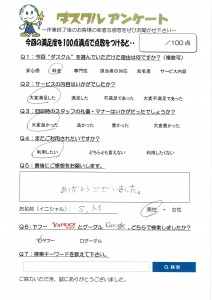 ダスクルアンケート
～作業終了後のお客様の率直な感想をぜひお聞かせ下さい～
今回の満足度を100点満点で点数をつけると・・　/100点
Q1：今回“ダスクル”を選んでいただけた理由は何ですか？（複数可）
安心感　料金　専門性　担当者の対応　知名度　サービス内容
Q2：サービスの内容はいかがでしたか？
大変満足した　満足した　不満足であった　大変不満足であった
Q3：訪問時のスタッフの礼儀・マナーはいかがだったでしょうか？
大変良かった　良かった　悪かった　大変悪かった
Q4：またご利用されたいですか？
利用したい　どちらとも言えない　利用したくない
Q5：最後にご感想をお願いします。
ありがとうございました。
お名前（イニシャル）　S.　男性・女性
Q6：ヤフー YAHOO! とグーグル Google、どちらで検索しましたか？
ヤフー　ロ グーグル
Q7：検索キーワードを教えて下さい。
検索
ご協力いただき、誠にありがとうございました。